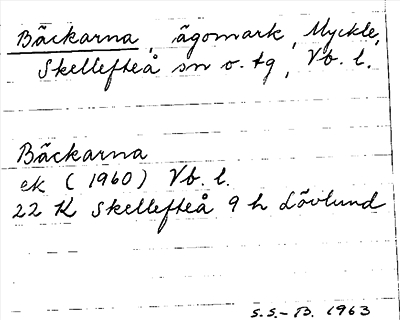 Bäckarna, ägomark, Myckle,
Skellefteå sn o. tg, Vb. l.
Bäckarna
ek (1960) Vb. l.
22 K Skellefteå 9 h Lövlund
S.S.-B. 1963